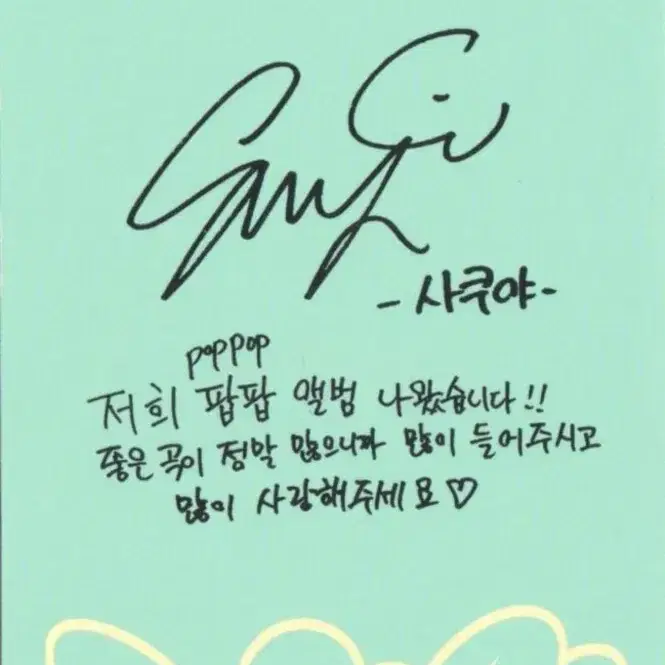 -사쿠야-
poppop
저희 팝팝 앨범 나왔습니다!!
좋은 곡이 정말 많으니까 많이 들어주시고
많이 사랑해주세요♡